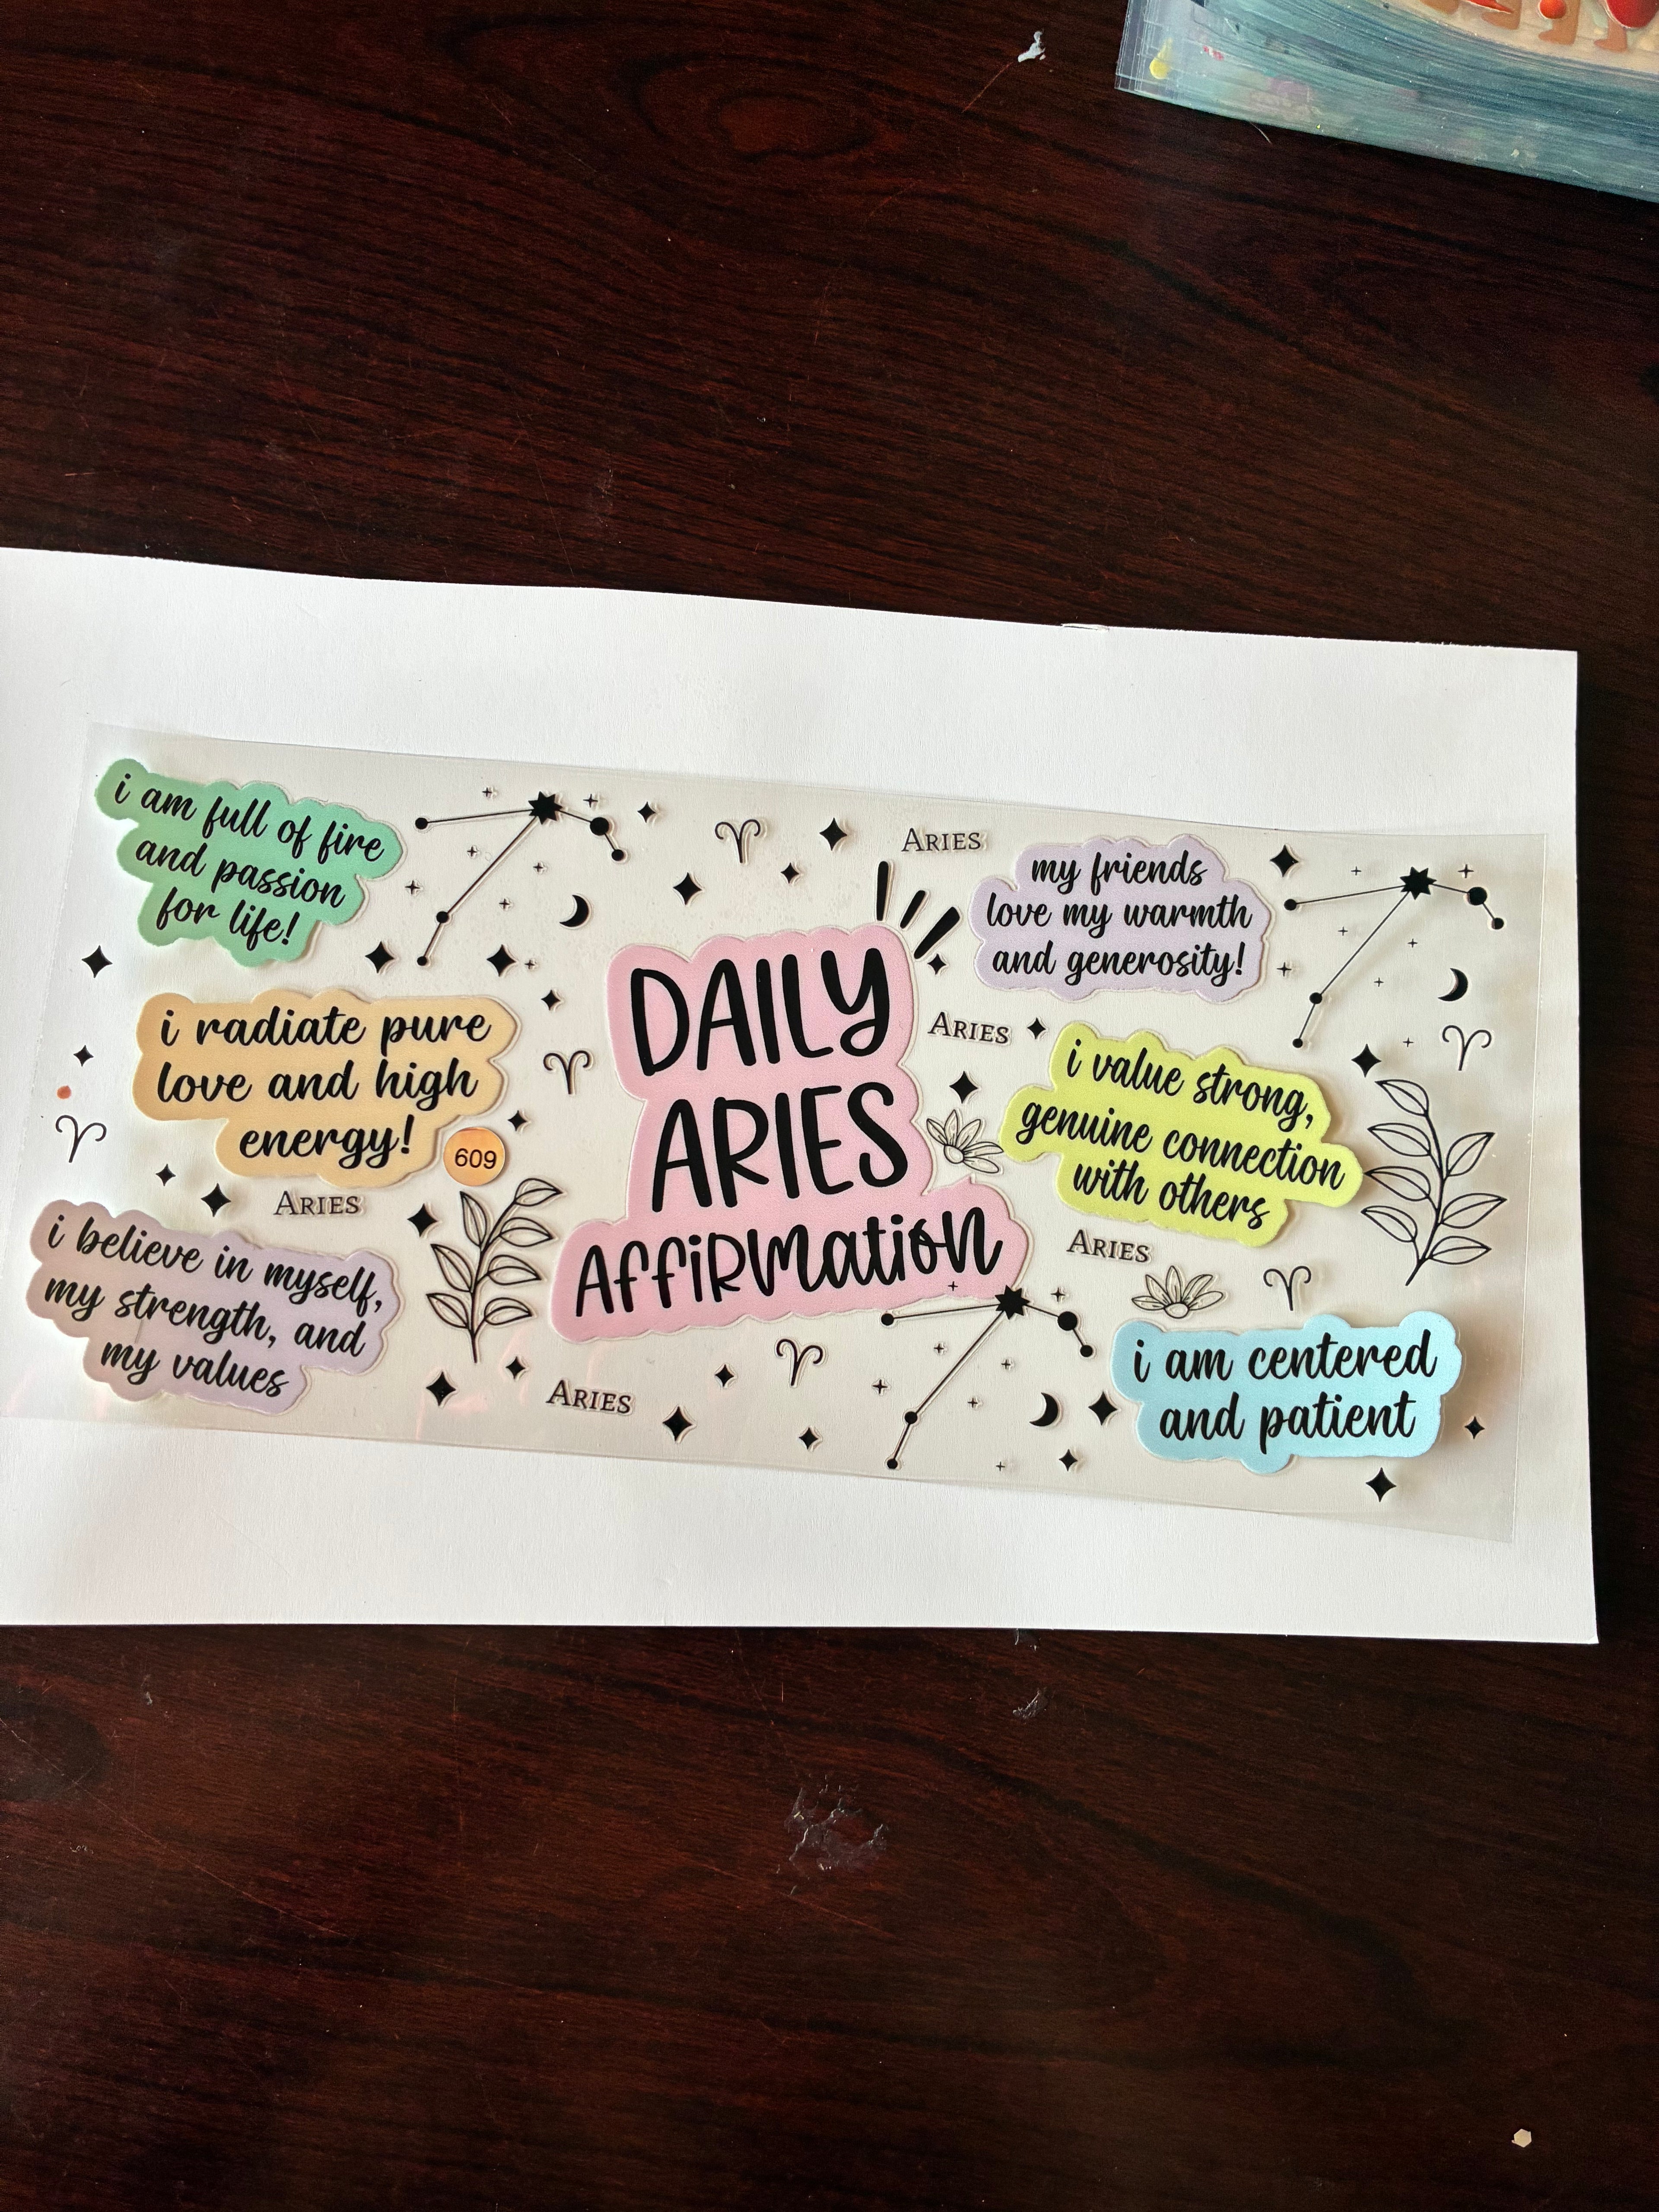 i am full of fire
and passion
for life!
ARIES
my friends
love my warmth
and generosity!
i radiate pure
love and high
energy!
609
DAILY
ARIES
AFFiRMation
ARIES
i value strong,
genuine connection
with others
ARIES
i believe in myself,
my strength, and
my values
ARIES
ARIES
i am centered
and patient